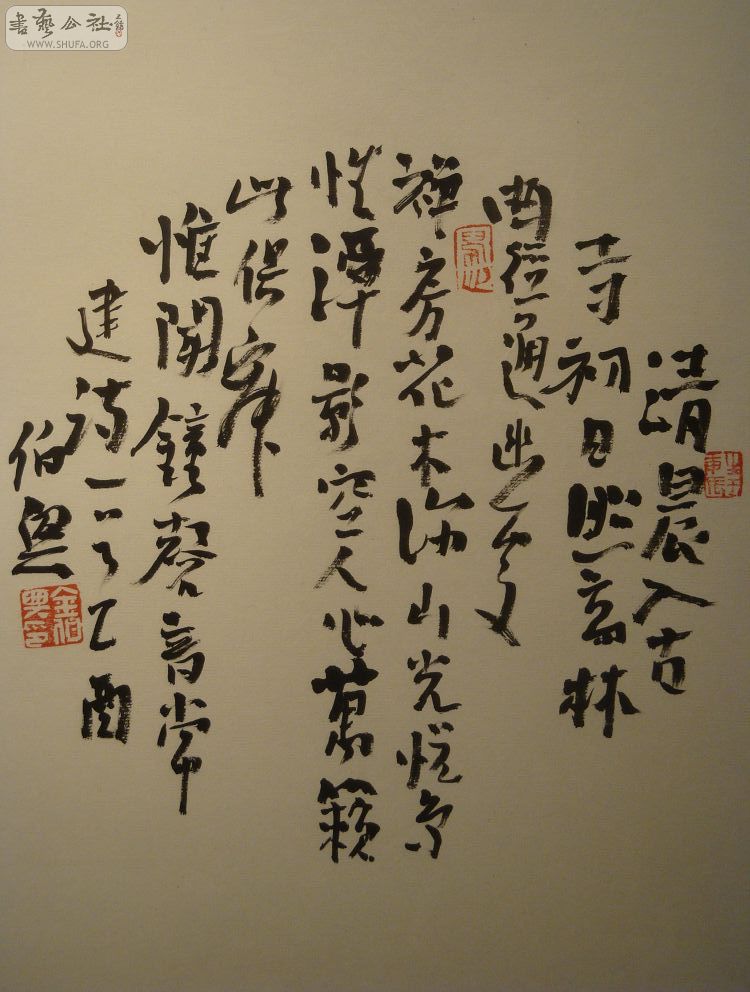 書藝公社
WWW.SHUFA.ORG
清晨入古
寺初日照高林
曲徑通幽處
禪房花木深山光悅鳥
性潭影空人心萬籟
此俱寂
惟聞鐘磬音常
建詩一首乙酉
伯興
金伯興印